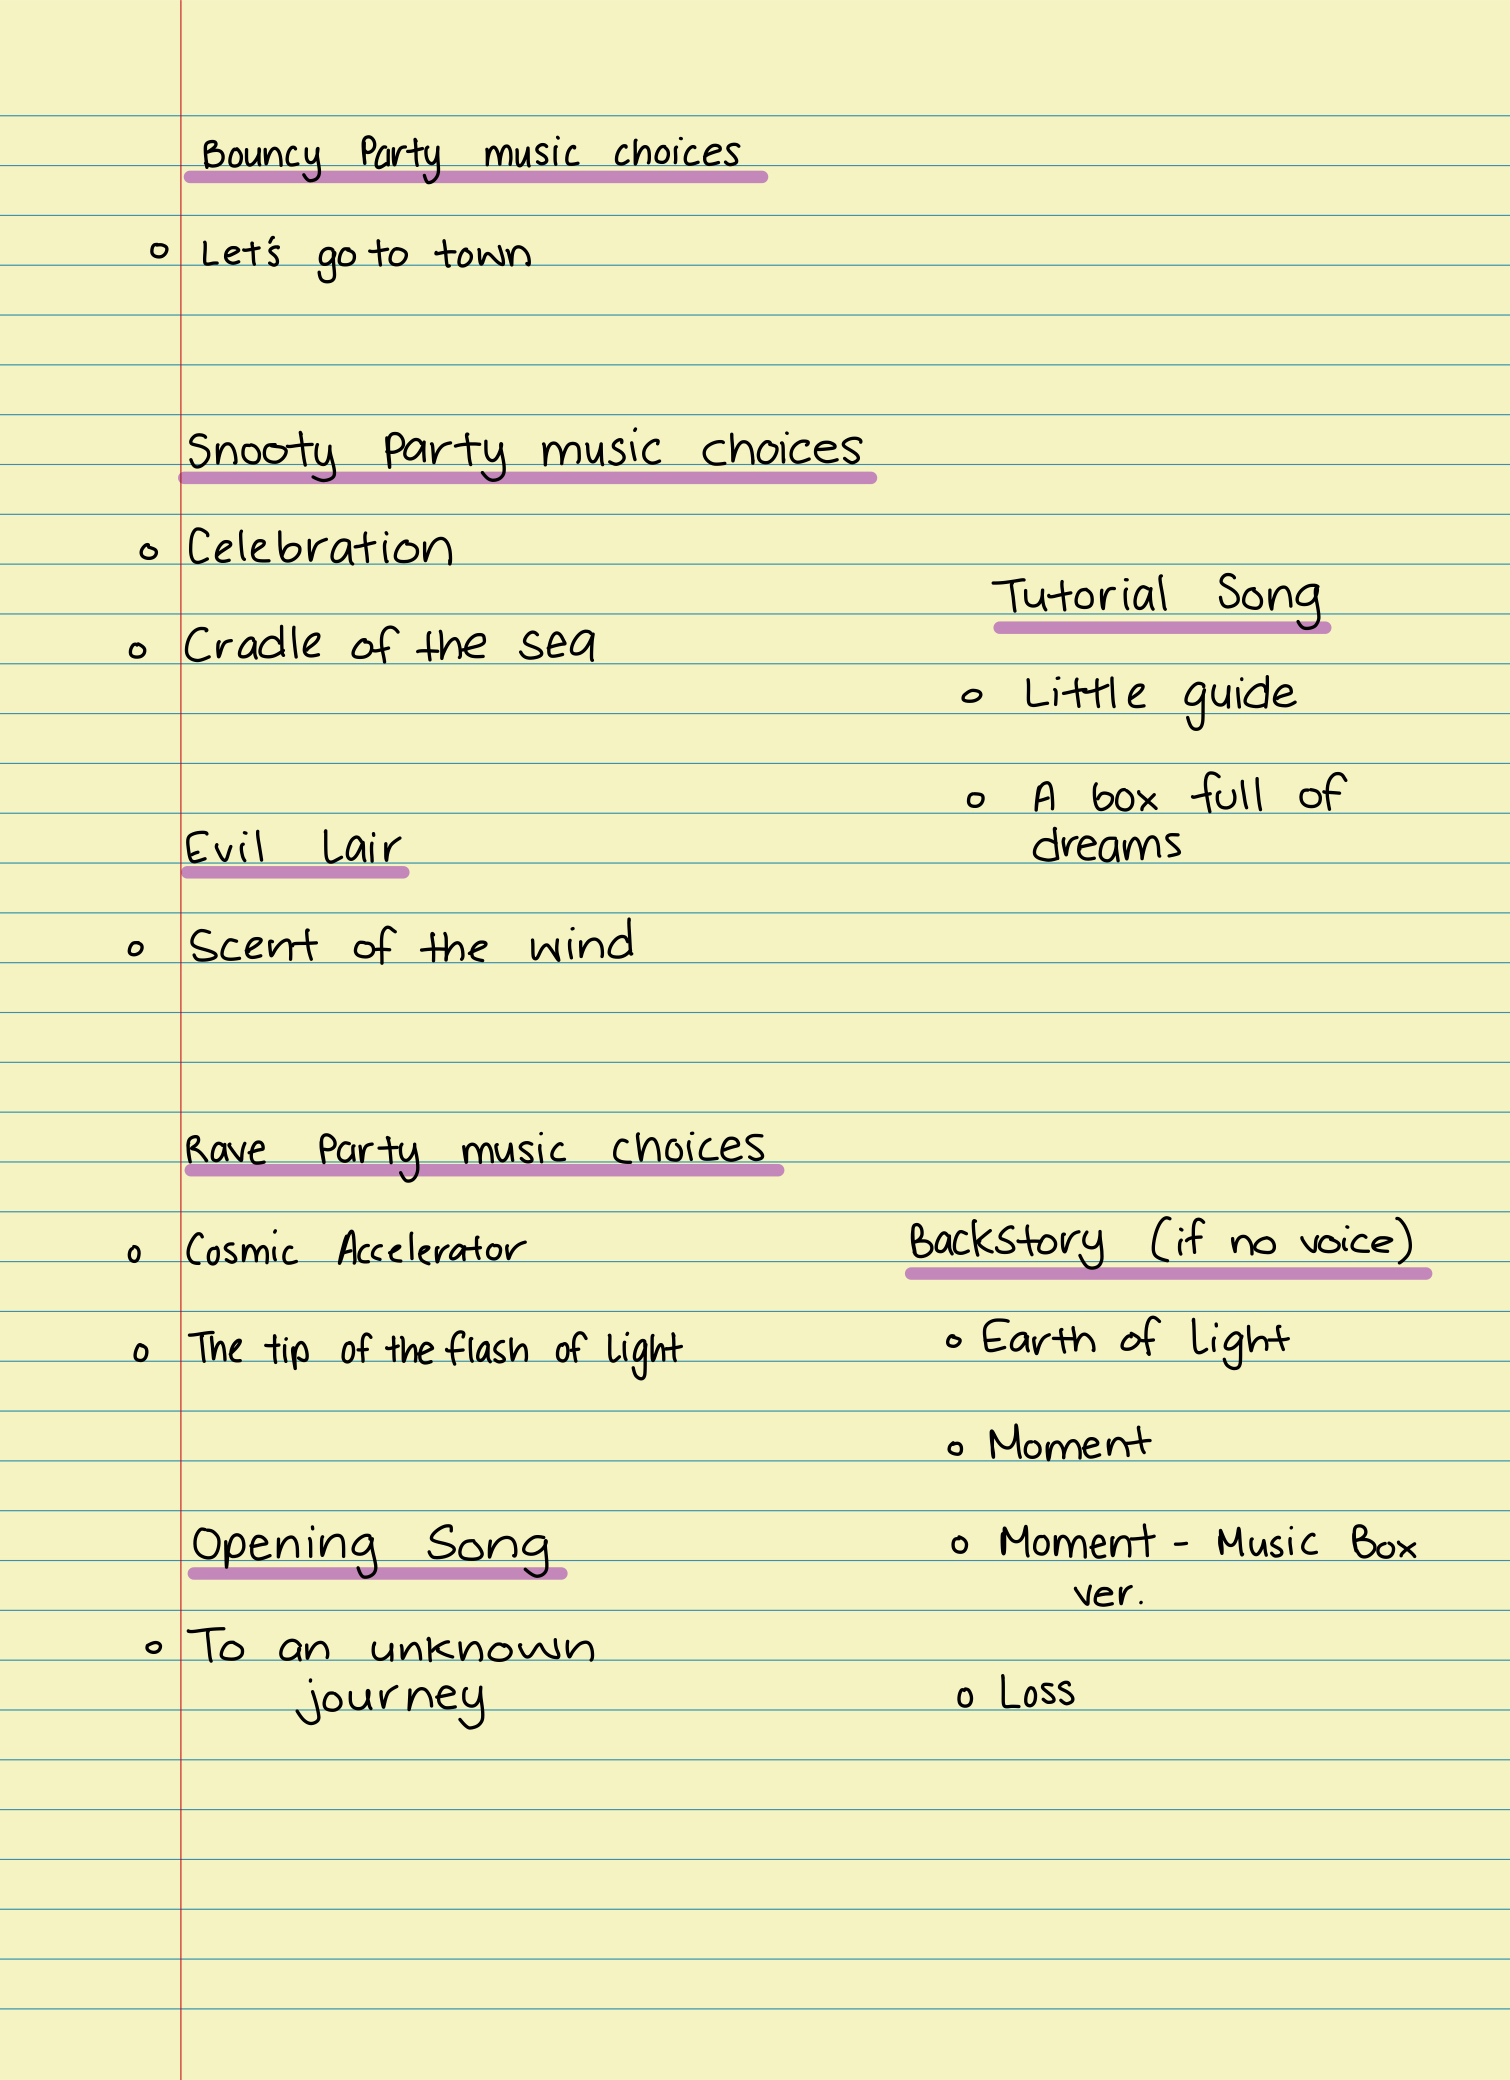 Bouncy Party music choices
o Let's go to town
Snooty Party music choices
o Celebration
o Cradle of the sea
Evil Lair
o Scent of the wind
Rave Party music choices
o Cosmic Accelerator
o The tip of the flash of light
Opening Song
o To an unknown
journey
Tutorial Song
o Little guide
o A box full of
dreams
Backstory (if no voice)
o Earth of light
o Moment
o Moment - Music Box
ver.
o Loss